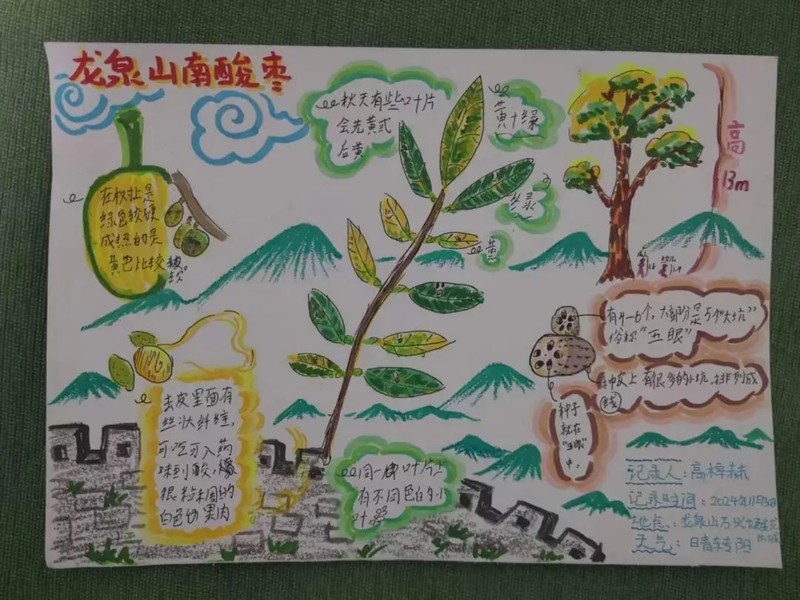 龙泉山南酸枣
秋天有些叶片
会先黄或
后黄
黄+绿
绿
黄
高
13m
在权上是
绿色较硬
成熟的是
黄色比较
软
去皮里面有
丝状纤维,
可泡可入药
味到酸,
很粘周围的
白色的果肉
有4-6个,大部分是5个"大坑"
俗称"五眼"
种皮上有很多的小坑,排列成
线
种子
就在
"五眼"
中,
同一棵叶片上
有不同色的小
叶
记录人:高梓林
记录时间:2024年11月3日
地点:龙泉山
天气:日青转阴